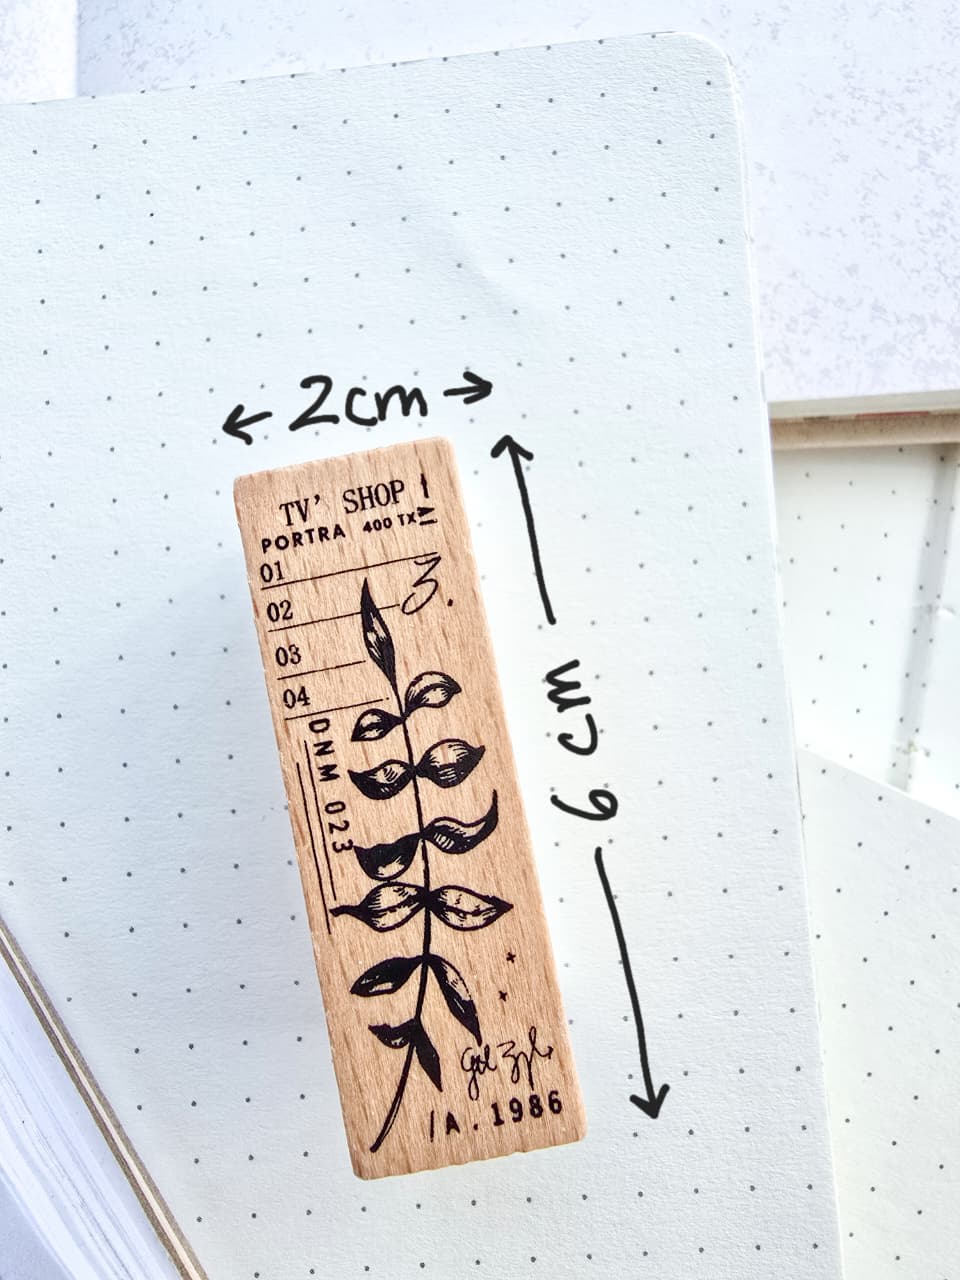 2cm
6 cm
TV' SHOP
PORTRA 400 TX
01
02
3.
03
04
DNM 023
/A.1986